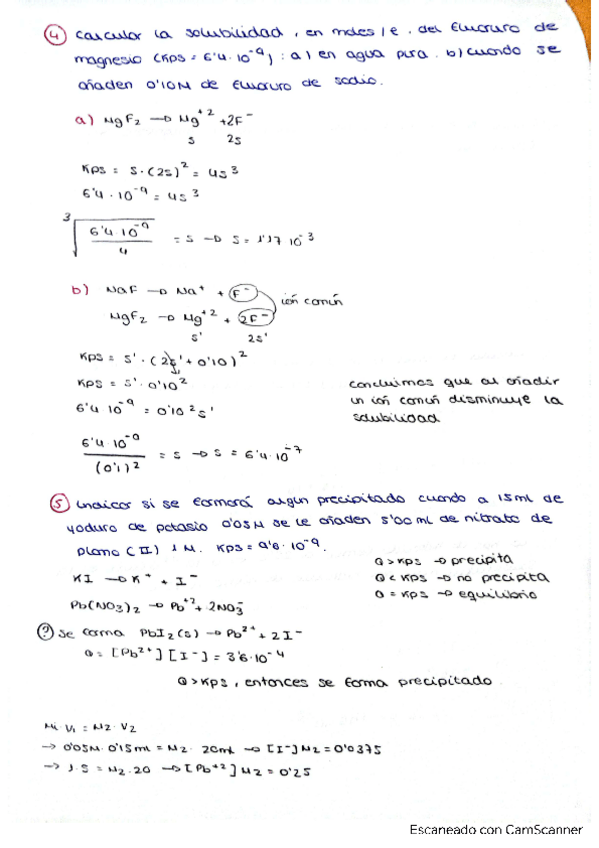 ④ Calcular la solubilidad, en moles/l, del fluoruro de
magnesio (KPS = 6'4·10⁻⁹): a) en agua pura. b) cuando se
añaden 0'10M de fluoruro de sodio.
a) MgF₂ → Mg⁺² + 2F⁻
s 2s
KPS = s·(2s)² = 4s³
6'4·10⁻⁹ = 4s³
³√(6'4·10⁻⁹/4) = s → s = 1'17·10⁻³
b) NaF → Na⁺ + F⁻
ión común
MgF₂ → Mg⁺² + 2F⁻
s' 2s'
KPS = s'·(2s' + 0'10)²
KPS = s'·0'10²
concluimos que al añadir
6'4·10⁻⁹ = 0'10²s'
un ión común disminuye la
solubilidad
6'4·10⁻⁹/(0'1)² = s → s = 6'4·10⁻⁷
⑤ Indicar si se formará algún precipitado cuando a 15ml de
yoduro de potasio 0'05M se le añaden 5'00 ml de nitrato de
plomo (II) 1M. KPS = 9'6·10⁻⁹.
Q > KPS → precipita
KI → K⁺ + I⁻
Q < KPS → no precipita
Q = KPS → equilibrio
Pb(NO₃)₂ → Pb⁺² + 2NO₃⁻
? Se forma PbI₂(s) → Pb²⁺ + 2I⁻
Q = [Pb²⁺][I⁻] = 3'6·10⁻⁴
Q > KPS, entonces se forma precipitado
M₁·V₁ = M₂·V₂
→ 0'05M·0'15ml = M₂·20ml → [I⁻] M₂ = 0'0375
→ 1·5 = M₂·20 → [Pb⁺²] M₂ = 0'25
Escaneado con CamScanner